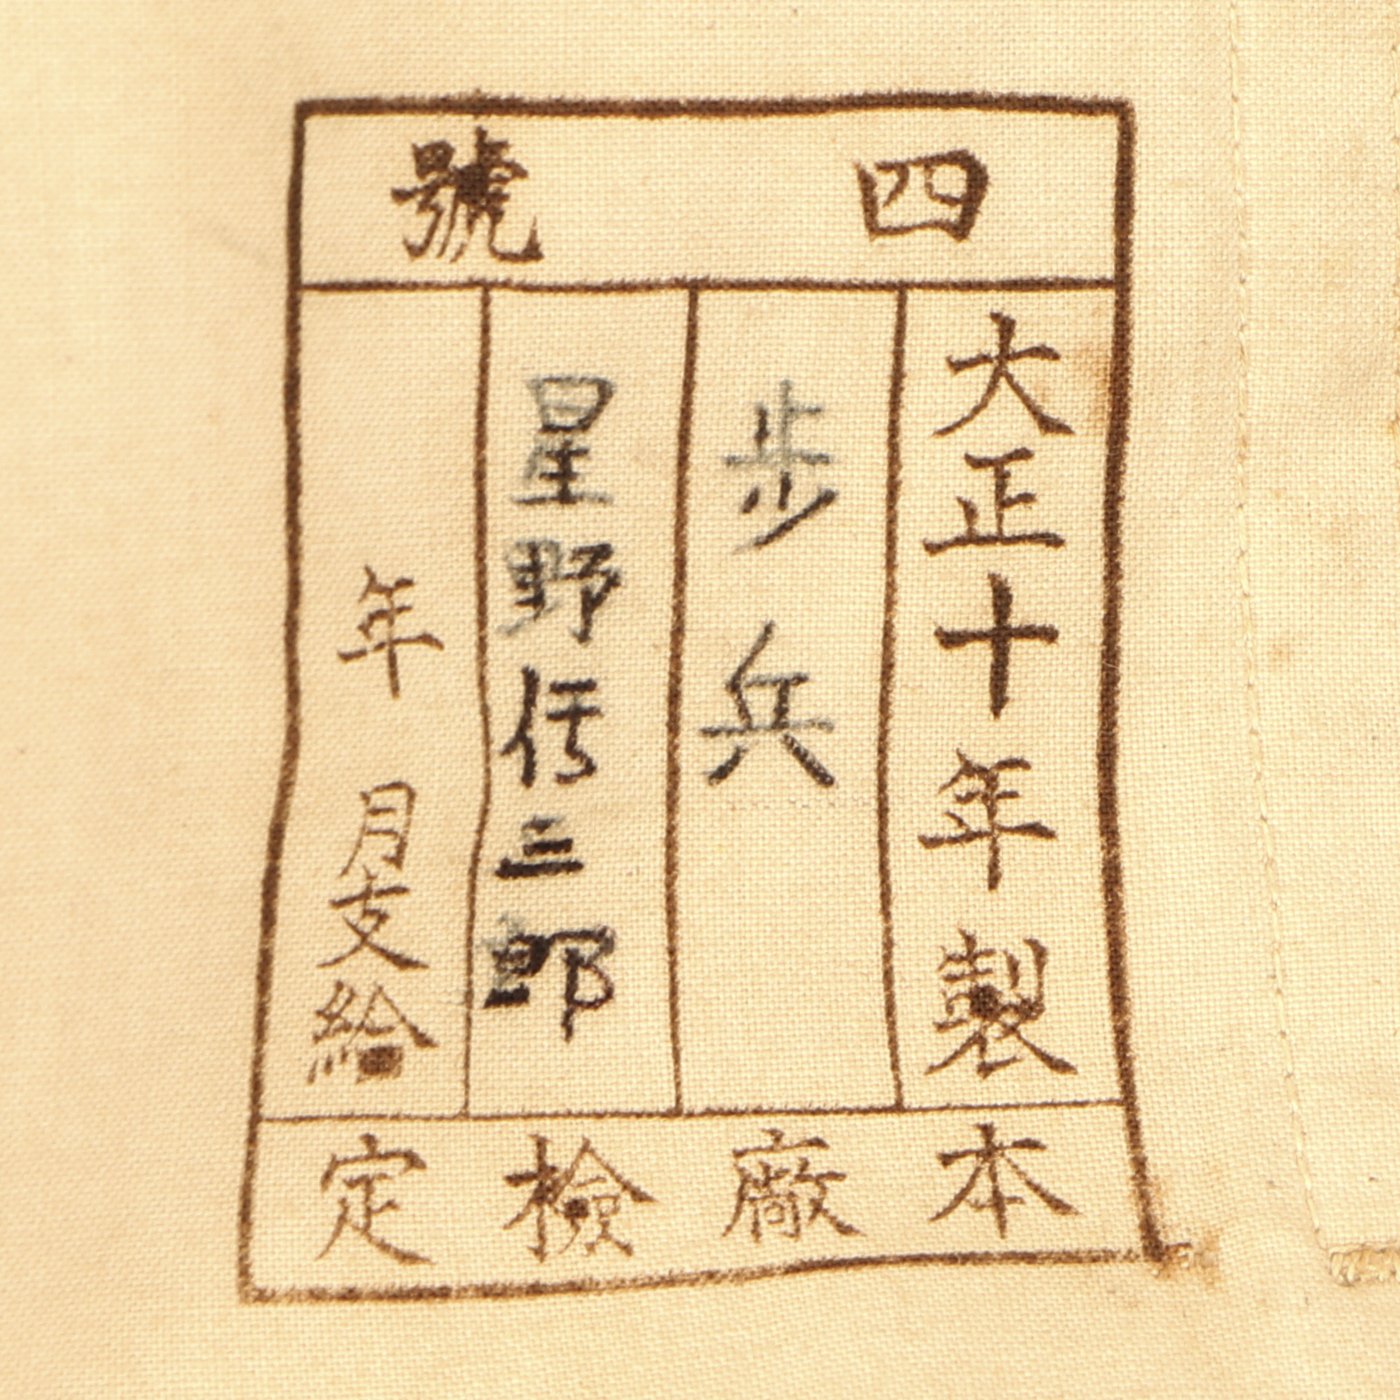 四號
大正十年製
步兵
星野信三郎
年 月支給
本廠檢定